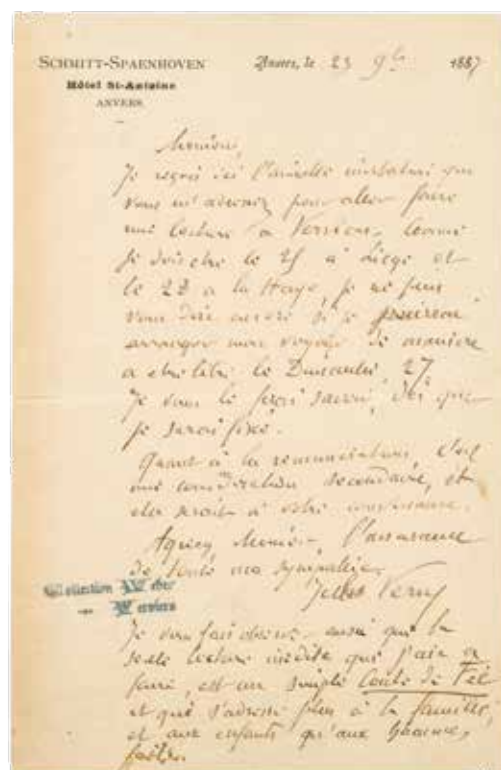 SCHMITT-SPAENHOVEN
Hôtel St-Antoine
ANVERS
Anvers, le 23 9bre 1887
Monsieur,
Je reçois ici l'aimable invitation que
vous m'adressez pour aller faire
une lecture à Verviers. Comme
je dois être le 25 à Liège et
le 28 à la Haye, je ne puis
vous dire encore si je pourrai
arranger mon voyage de manière
à être libre le Dimanche 27
Je vous le ferai savoir, dès que
je serai fixé.
Quant à la rémunération, c'est
une considération secondaire, et
elle serait à votre convenance.
Agréez Monsieur l'assurance
de toute ma sympathie.
Jules Verne
Collection
Verviers
Je vous fais observer aussi que la
seule lecture inédite que j'aie à
faire, est un simple Conte de Fée
et qui s'adresse plus à la famille,
et aux enfants qu'aux hommes
faits.